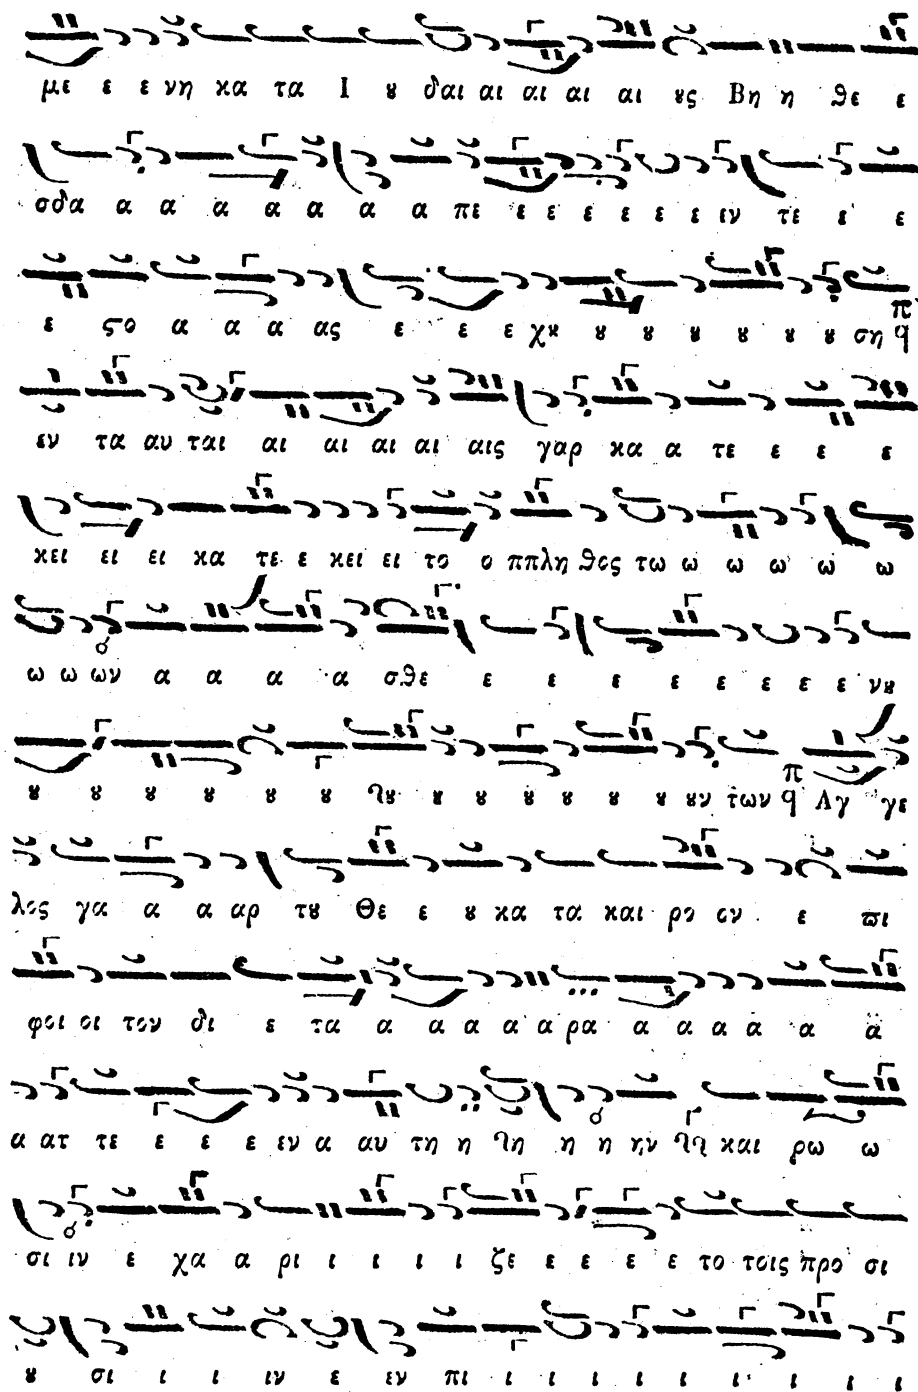 με ε ε νη κα τα Ι ȣ δαι αι αι αι αι ȣς Βη η ϑε ε
σδα α α α α α α α πε ε ε ε ε ε ε ειν τε ε ε
ε ϛο α α α ας ε ε ε χȣ ȣ ȣ ȣ ȣ ȣ ȣ ση π ϥ
εν τα αυ ται αι αι αι αι αις γαρ κα α τε ε ε ε
κει ει ει κα τε ε κει ει το ο ππλη ϑος τω ω ω ω ω ω
ω ω ων α α α α σϑε ε ε ε ε ε ε ε ε νȣ
ȣ ȣ ȣ ȣ ȣ ȣ ȣ ȣ ȣ ȣ ȣ ȣ ȣν των π ϥ Αγ γε
λος γα α α αρ τȣ Θε ε ȣ κα τα και ρο ον ε πι
φοι οι τον δι ε τα α α α α α ρα α α α α α α
α ατ τε ε ε ε εν α αυ τη η η η ην και ρω ω
σι ιν ε χα α ρι ι ι ι ι ζε ε ε ε ε το τοις προ σι
ȣ σι ι ι ιν ε εν πι ι ι ι ι ι ι ι ι ι